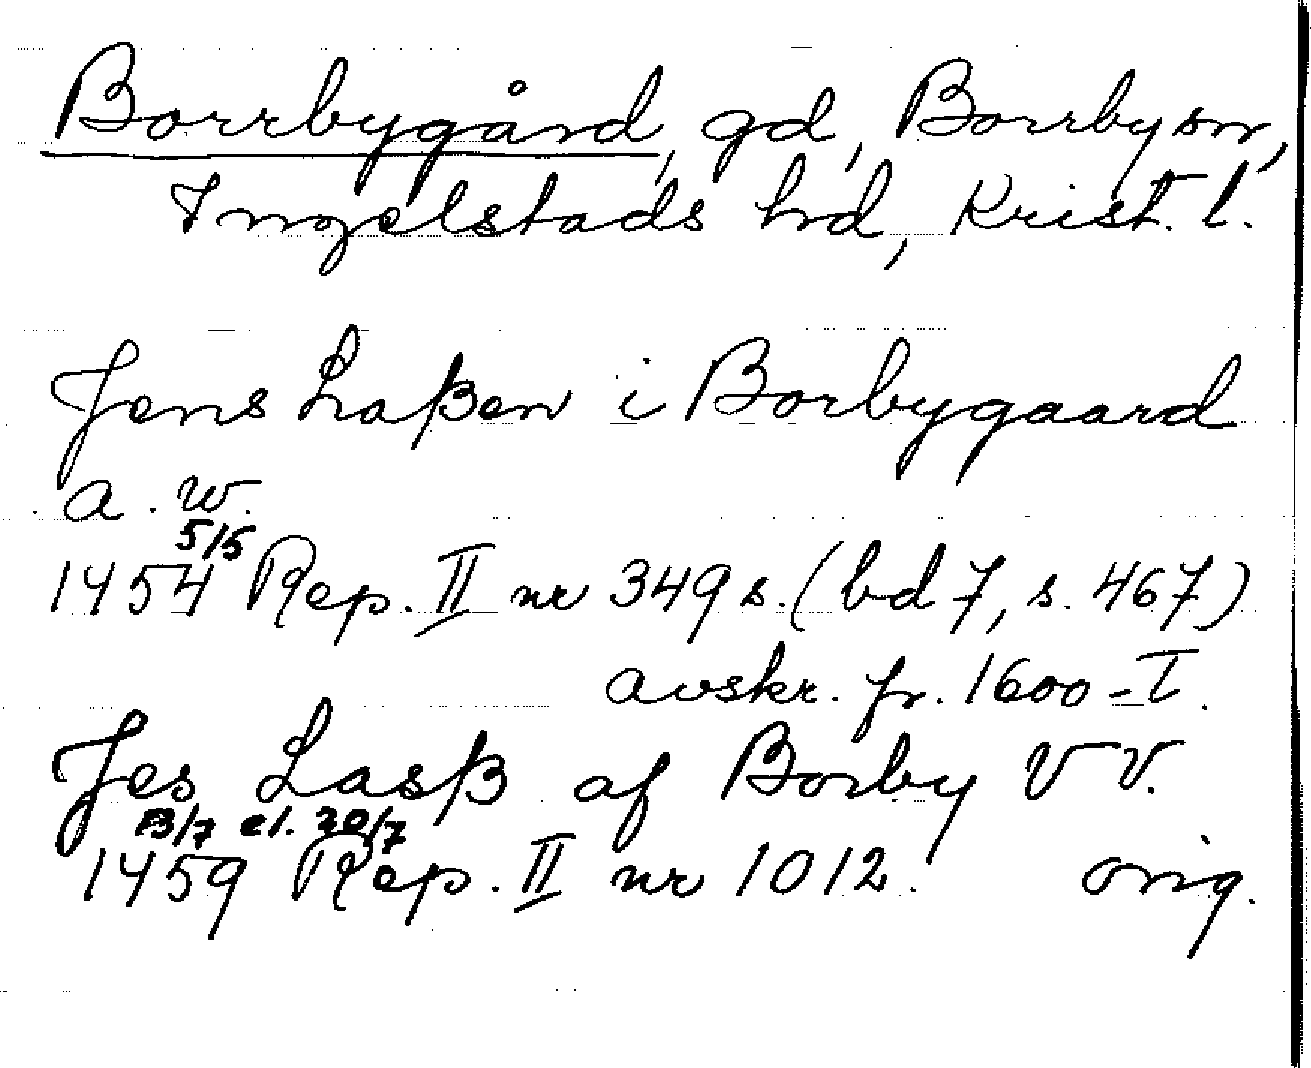 Borrbygård, gd, Borrby sn,
Ingelstads hd, Krist. l.
Jens Laßen i Borbygaard
a. w.
5/5
1454 Rep. II nr 349 s. (bd 7, s. 467)
avskr. fr. 1600-T.
Jes Lasß af Borby V V.
13/7 el. 20/7
1459 Rep. II nr 1012. orig.